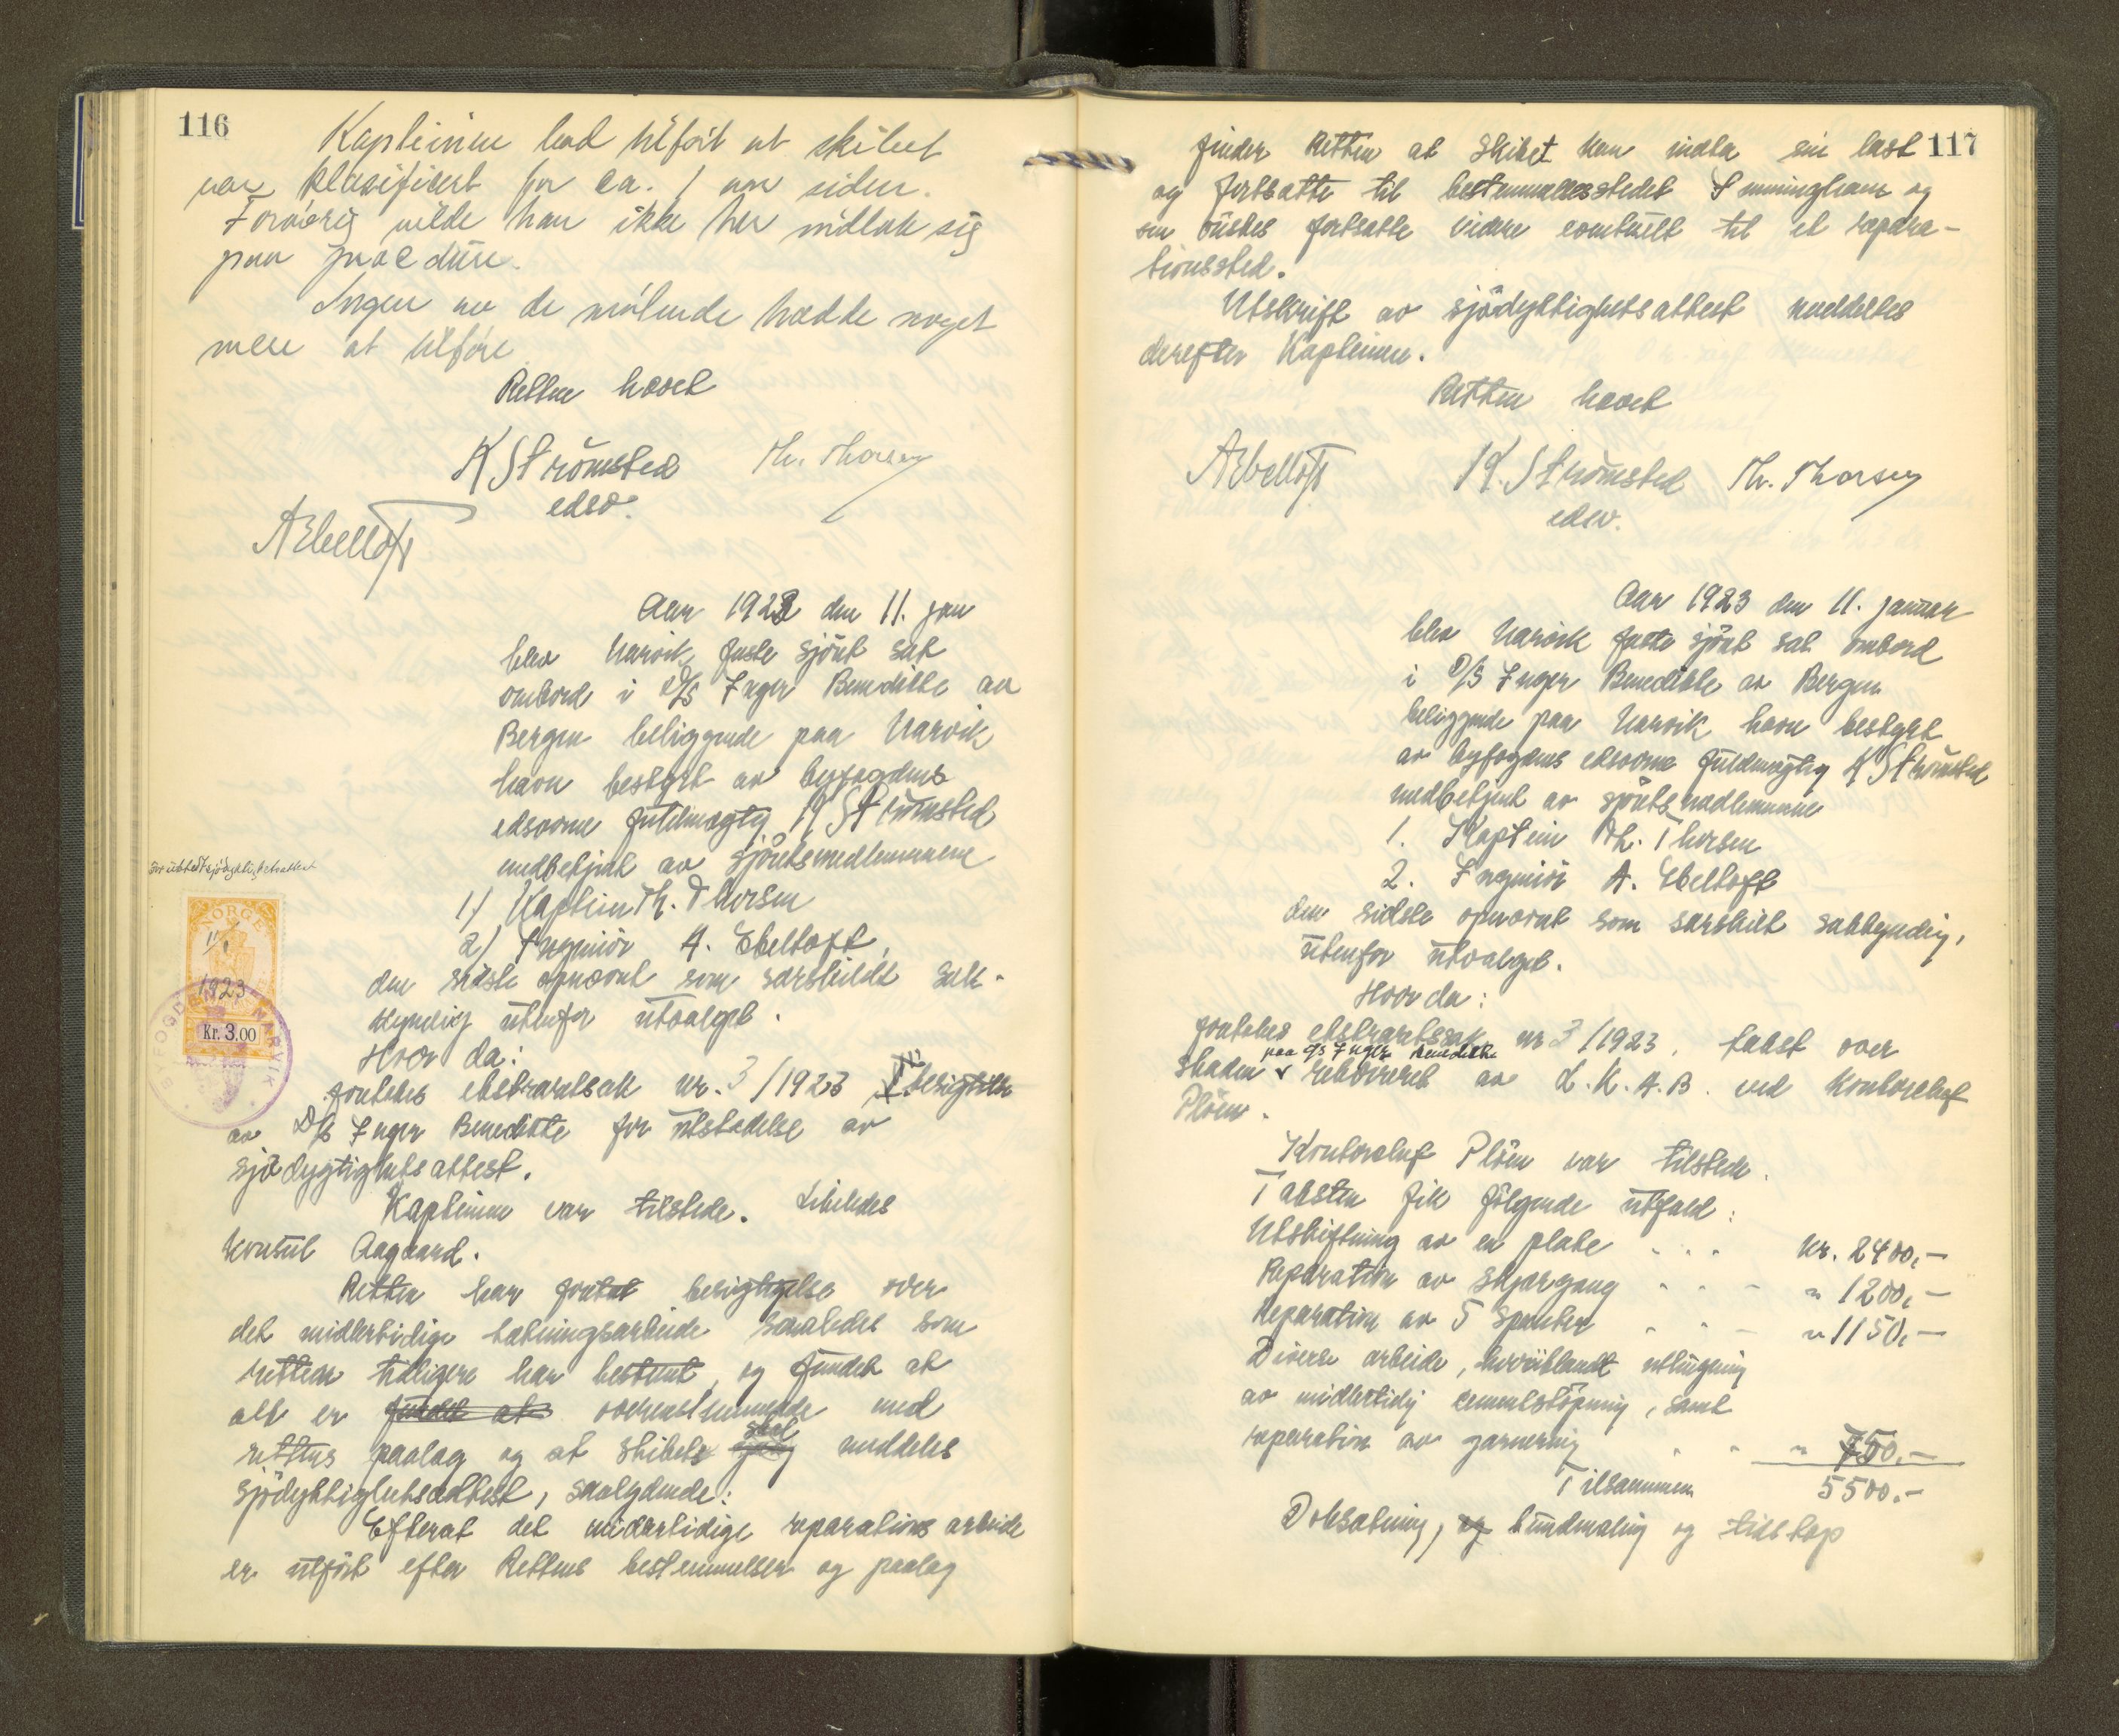 116
Kapteinen lod tilføre at skibet
var klasificert for ca. 1 aar siden.
Forøvrig vilde han ikke her indlate sig
paa procedure.
Ingen av de mötende hadde noget
mere at tilföre
Retten hævet
K Strömsted Th. Thorsen
edsv.
AEbeltoft
Aar 1923 den 11. jan
blev Narvik faste sjöret sat
ombord i D/S Inger Benedikte av
Bergen beliggende paa Narvik
havn bestyrt av byfogdens
edsvorne fuldmægtig K Strömsted
medbetjent av sjöretsmedlemmene
1) Kaptein Th. Thorsen
2) Ingeniör A. Ebeltoft,
den sidste opnævnt som særskildt sak-
kyndig utenfor utvalget.
Hvor da:
foretokes ekstraretssak nr. 3/1923 besigtelse
av D/S Inger Benedikte for utstedelse av
sjödygtighetsattest.
Kapteinen var tilstede. Likeledes
konsul Aagaard.
Retten har foretat besigtigelse over
det midlertidige tætningsarbeide saaledes som
retten tidligere har bestemt, og fundet at
alt er fundet at overenstemmende med
rettens paalæg og at skibet skal meddeles
sjödyktighetsattest, saalydende:
Efterat det midlertidige reparations arbeide
er utfört efter Rettens bestemmelser og paalæg
For utstedt sjödyktighetsattest
NORGE
11/1
1923
Kr. 3.00
BYFOGDEN I NARVIK
117
finder Retten at Skibet kan indta sin last
og fortsætte til bestemmelsesstedet Immingham og
om önskes fortsætte videre eventuelt til et repara-
tionssted.
Utskrift av sjödyktighetsattest meddeltes
derefter Kapteinen.
Retten hævet
AEbeltoft K. Strömsted Th. Thorsen
edsv.
Aar 1923 den 11. januar
blev Narvik faste sjöret sat ombord
i D/S Inger Benedikte av Bergen
beliggende paa Narvik havn bestyrt
av byfogdens edsvorne fuldmægtig K Strömsted
medbetjent av sjöretsmedlemmene
1. Kaptein Th. Thorsen
2. Ingeniör A. Ebeltoft
den sidste opnævnt som særskilt sakkyndig,
utenfor utvalget.
Hvor da:
foretokes ekstraretssak nr 3/1923. takst over
paa D/S Inger Benedikte
skaden rekvireret av L.K.A.B. ved kontorchef
Plöen.
Kontorchef Plöen var tilstede.
Taksten fik fölgende utfald:
Utskiftning av en plate . . . kr. 2400,-
Reparation av skjærgang . . - " 1200,-
Reparation av 5 spanter . . - " 1150,-
Diverse arbeide, hvoriblandt uthugning
av midlertidig cementstöpning, samt
reparation av garnering . . " 750.-
Tilsammen 5500.-
Doksætning, og bundmaling og tidstap